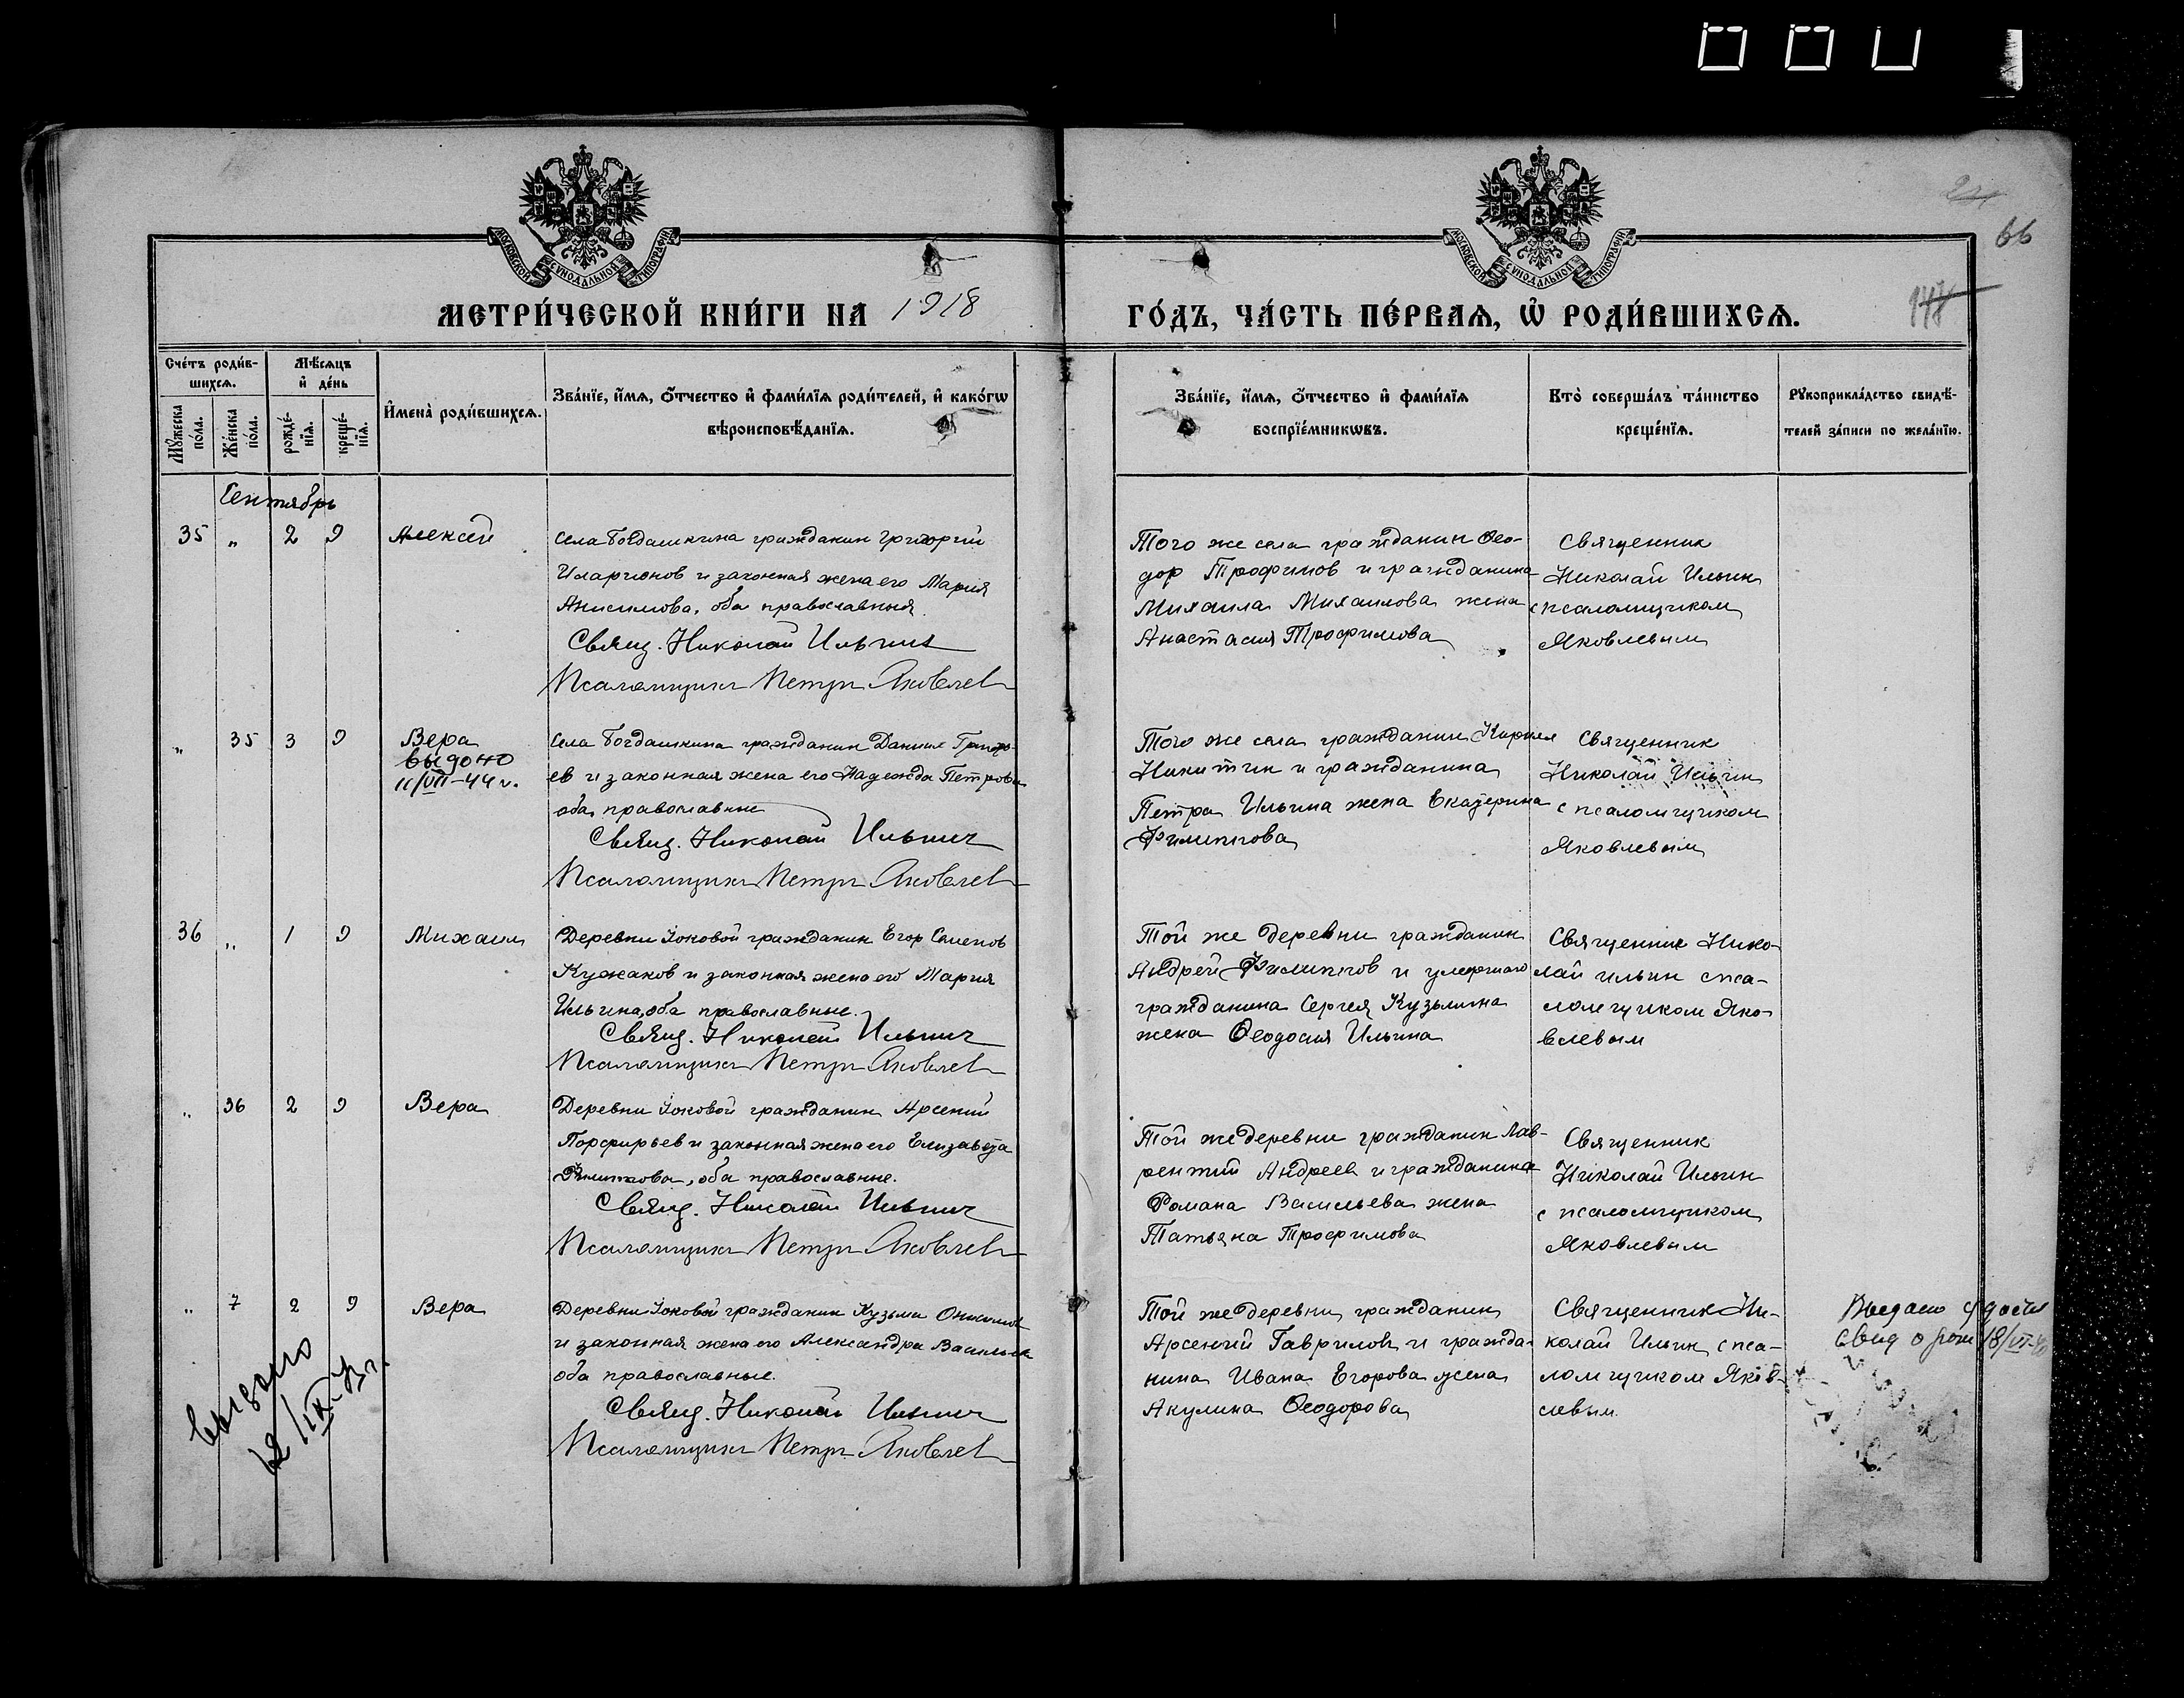 МОСКОВСКОЙ СУНОДАЛЬНОЙ ТИПОГРАФІИ
МОСКОВСКОЙ СУНОДАЛЬНОЙ ТИПОГРАФІИ
66
МЕТРИ́ЧЕСКОЙ КНИ́ГИ НА 1918
ГО́ДЪ, ЧА́СТЬ ПЕ́РВАѦ, Ѡ РОДИ́ВШИХСѦ.
Сче́тъ роди́в-
шихсѧ.
Мѣ́сѧцъ
и де́нь
Мꙋ́жеска
по́ла.
Же́нска
по́ла.
рожде́-
нїѧ.
креще́-
нїѧ.
Имена̀ роди́вшихсѧ.
Зва́нїе, и́мѧ, ѻ́тчество и фами́лїѧ роди́телей, и како́гѡ
вѣроисповѣ́данїѧ.
Зва́нїе, и́мѧ, ѻ́тчество и фами́лїѧ
воспрїе́мникѡвъ.
Кто̀ соверша́лъ та́инство
креще́нїѧ.
Рꙋкоприкла́дство свидѣ́-
телей за́писи по жела́нїю.
Сентябрь
35 " 2 9 Алексей
Села Богдашкина гражданин Григорий
Иларионов и законная жена его Мария
Анисимова, оба православныя.
Свящ. Николай Ильин
Псаломщик Петр Яковлев
Того же села гражданин Ѳео-
дор Трофимов и гражданина
Михаила Михаилова жена
Анастасия Трофимова
Священник
Николай Ильин
с псаломщиком
Яковлевым
" 35 3 9 Вера
выдано
11/VII-44 г.
Села Богдашкина гражданин Даниил Григорь-
ев и законная жена его Надежда Петрова
оба православные
Свящ. Николай Ильин
Псаломщик Петр Яковлев
Того же села гражданин Кирилл
Никитин и гражданина
Петра Ильина жена Екатерина
Филиппова
Священник
Николай Ильин
с псаломщиком
Яковлевым
36 " 1 9 Михаил
Деревни Гоковой гражданин Егор Семенов
Кужаков и законная жена его Мария
Ильина, оба православные.
Свящ. Николай Ильин
Псаломщик Петр Яковлев
Той же деревни гражданин
Андрей Филиппов и умершаго
гражданина Сергея Кузьмина
жена Ѳеодосия Ильина
Священник Нико-
лай Ильин с пса-
ломщиком Яко-
влевым
" 36 2 9 Вера
Деревни гражданин Арсений
Порфирьев и законная жена его Елизавета
Филиппова, оба православные.
Свящ. Николай Ильин
Псаломщик Петр Яковлев
Той же деревни гражданин Лав-
рентий Андреев и гражданина
Романа Васильева жена
Татьяна Трофимова
Священник
Николай Ильин
с псаломщиком
Яковлевым
" 7 2 9 Вера
Деревни гражданин Кузьма
и законная жена его Александра Васильева
оба православные.
Свящ. Николай Ильин
Псаломщик Петр Яковлев
Той же деревни гражданин
Арсений Гаврилов и гражда-
нина Ивана Егорова жена
Акулина Ѳеодорова
Священник Ни-
колай Ильин с пса-
ломщиком Яков-
левым.
свид о рож 18/VI
выдано